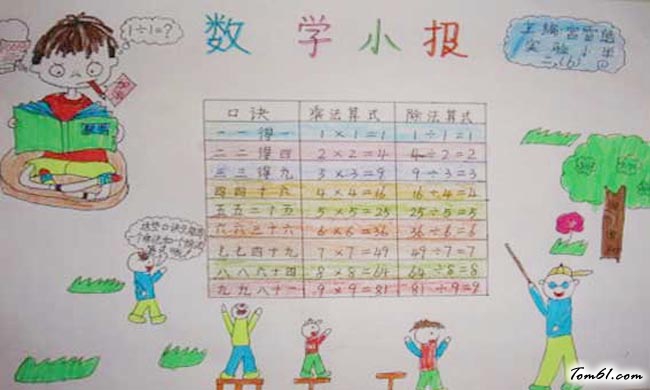 1÷1=?
数学小报
主编
实验小学
二.(6)
数学
口诀 乘法算式 除法算式
一一得一 1×1=1 1÷1=1
二二得四 2×2=4 4÷2=2
三三得九 3×3=9 9÷3=3
四四十六 4×4=16 16÷4=4
五五二十五 5×5=25 25÷5=5
六六三十六 6×6=36 36÷6=6
七七四十九 7×7=49 49÷7=7
八八六十四 8×8=64 64÷8=8
九九八十一 9×9=81 81÷9=9
这些口诀只能
Tom61.com